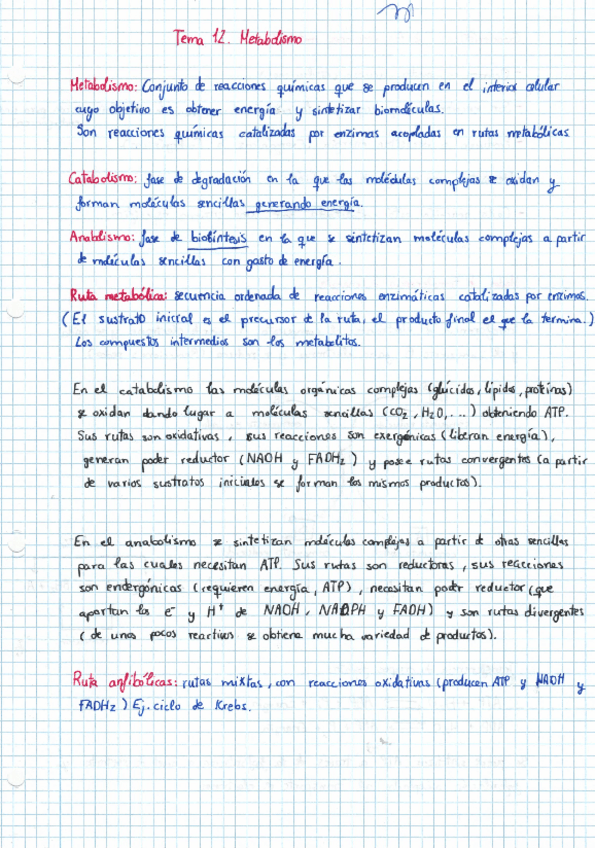 Tema 12. Metabolismo
Metabolismo: Conjunto de reacciones químicas que se producen en el interior celular
cuyo objetivo es obtener energía y sintetizar biomoléculas.
Son reacciones químicas catalizadas por enzimas acopladas en rutas metabólicas
Catabolismo: fase de degradación en la que las moléculas complejas se oxidan y
forman moléculas sencillas generando energía.
Anabolismo: fase de biosíntesis en la que se sintetizan moléculas complejas a partir
de moléculas sencillas con gasto de energía.
Ruta metabólica: secuencia ordenada de reacciones enzimáticas catalizadas por enzimas.
(El sustrato inicial es el precursor de la ruta, el producto final el que la termina.)
Los compuestos intermedios son los metabolitos.
En el catabolismo las moléculas orgánicas complejas (glúcidos, lípidos, proteínas)
se oxidan dando lugar a moléculas sencillas (CO2, H2O, ...) obteniendo ATP.
Sus rutas son oxidativas, sus reacciones son exergónicas (liberan energía),
generan poder reductor (NADH y FADH2) y posee rutas convergentes (a partir
de varios sustratos iniciales se forman los mismos productos).
En el anabolismo se sintetizan moléculas complejas a partir de otras sencillas
para las cuales necesitan ATP. Sus rutas son reductoras, sus reacciones
son endergónicas (requieren energía, ATP), necesitan poder reductor (que
aportan los e- y H+ de NADH, NADPH y FADH) y son rutas divergentes
(de unos pocos reactivos se obtiene mucha variedad de productos).
Ruta anfibólicas: rutas mixtas, con reacciones oxidativas (producen ATP y NADH y
FADH2) Ej. ciclo de Krebs.